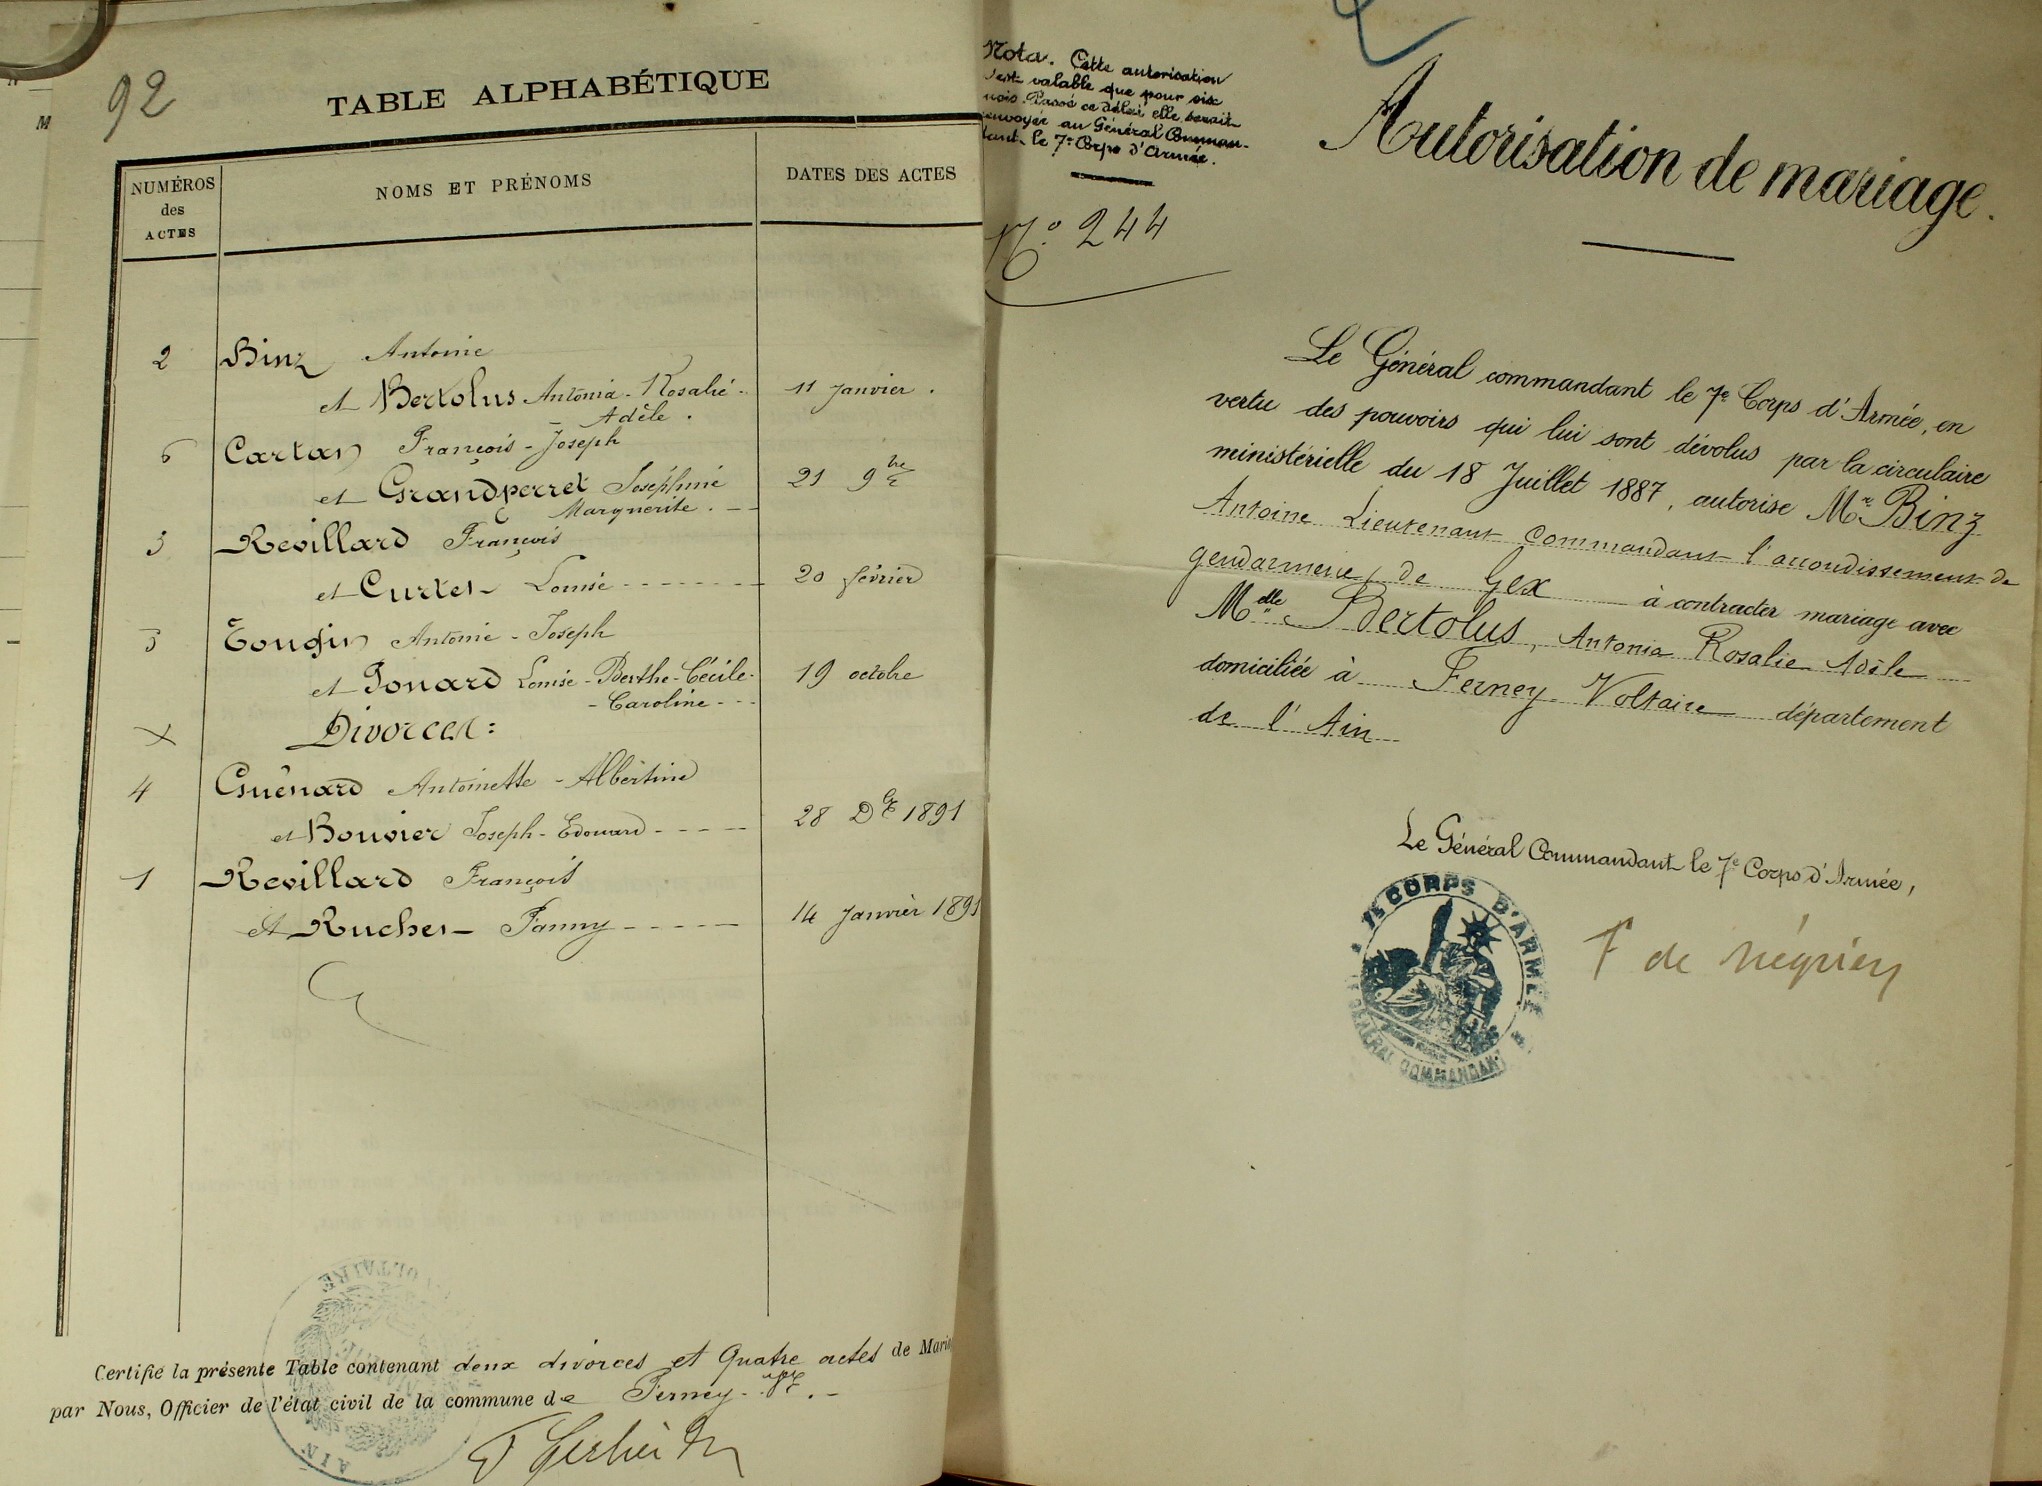 92
TABLE ALPHABÉTIQUE
NUMÉROS
des
ACTES
NOMS ET PRÉNOMS
DATES DES ACTES
2 Binz Antoine
et Bertolus Antonia-Rosalie- 11 Janvier.
Adèle.
6 Cartan François-Joseph
et Grandperret Joséphine 21 9bre
Marguerite.
3 Revillard François
et Curtet Louise 20 février
5 Tougin Antoine-Joseph
et Jonard Louise-Berthe-Cécile- 19 octobre
-Caroline
Divorces:
4 Guénard Antoinette-Albertine
et Bouvier Joseph-Edouard 28 Dbre 1891
1 Revillard François
et Ruchet Fanny 14 Janvier 1891
Certifié la présente Table contenant deux divorces et Quatre actes de Maria
par Nous, Officier de l'état civil de la commune de Ferney
VOLTAIRE
AIN
Nota. Cette autorisation
n'est valable que pour six
mois. Passé ce délai, elle serait
renvoyée au Général Comman-
dant le 7e Corps d'Armée.
No 244
Autorisation de mariage.
Le Général commandant le 7e Corps d'Armée, en
vertu des pouvoirs qui lui sont dévolus par la circulaire
ministérielle du 18 Juillet 1887, autorise Mr Binz
Antoine Lieutenant Commandant l'arrondissement de
gendarmerie de Gex à contracter mariage avec
Melle Bertolus, Antonia Rosalie Adèle
domiciliée à Ferney-Voltaire département
de l'Ain
Le Général Commandant le 7e Corps d'Armée,
7E CORPS D'ARMÉE
GÉNÉRAL COMMANDANT
F de Négrier